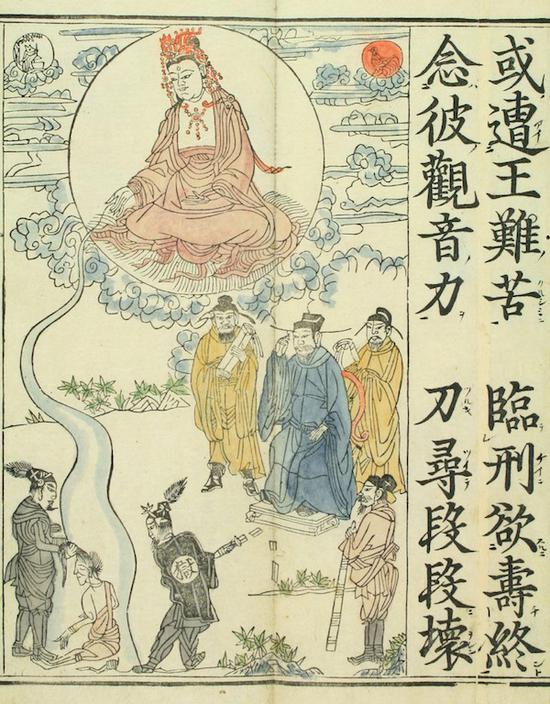 或遭王難苦　臨刑欲壽終
念彼觀音力　刀尋段段壞
獄